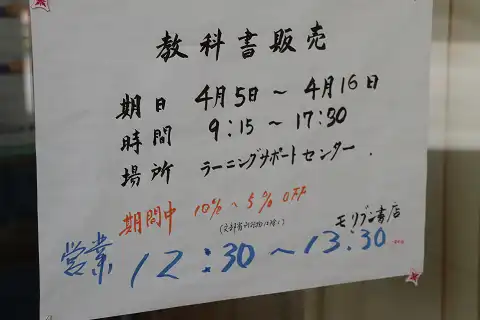 教科書販売
期日 4月5日～4月16日
時間 9:15～17:30
場所 ラーニングサポートセンター.
期間中 10%～5% OFF
モリブン書店
営業 12:30～13:30